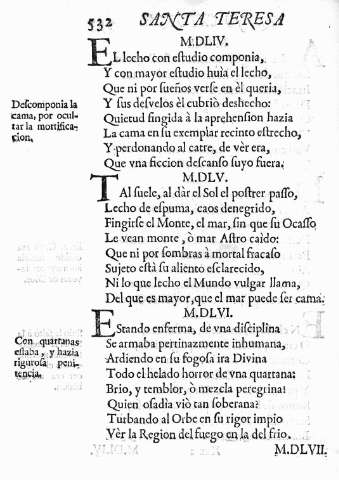 532 SANTA TERESA
M.DLIV.
EL lecho con estudio componia,
Y con mayor estudio huìa el lecho,
Que ni por sueños verse en èl queria,
Y sus desvelos èl cubriò deshecho:
Quietud fingida à la aprehension hazia
La cama en su exemplar recinto estrecho,
Y perdonando al catre, de vèr era,
Que vna ficcion descanso suyo fuera.
Descomponia la
cama, por ocul-
tar la mortifica-
cion.
M.DLV.
TAl suele, al dàr el Sol el postrer passo,
Lecho de espuma, caos denegrido,
Fingirse el Monte, el mar, sin que su Ocaso
Le vean monte, ò mar Astro caìdo:
Que ni por sombras à mortal fracaso
Sujeto està su aliento esclarecido,
Ni lo que lecho el Mundo vulgar llama,
Del que es mayor, que el mar puede ser cama.
M.DLVI.
EStando enferma, de vna disciplina
Se armaba pertinazmente inhumana,
Ardiendo en su fogosa ira Divina
Todo el helado horror de vna quartana:
Brio, y temblor, ò mezcla peregrina!
Quien osadia viò tan soberana?
Turbando al Orbe en su rigor impio
Vèr la Region del fuego en la del frio.
Con quartanas
estaba, y hazia
rigurosa peni-
tencia.
M.DLVII.